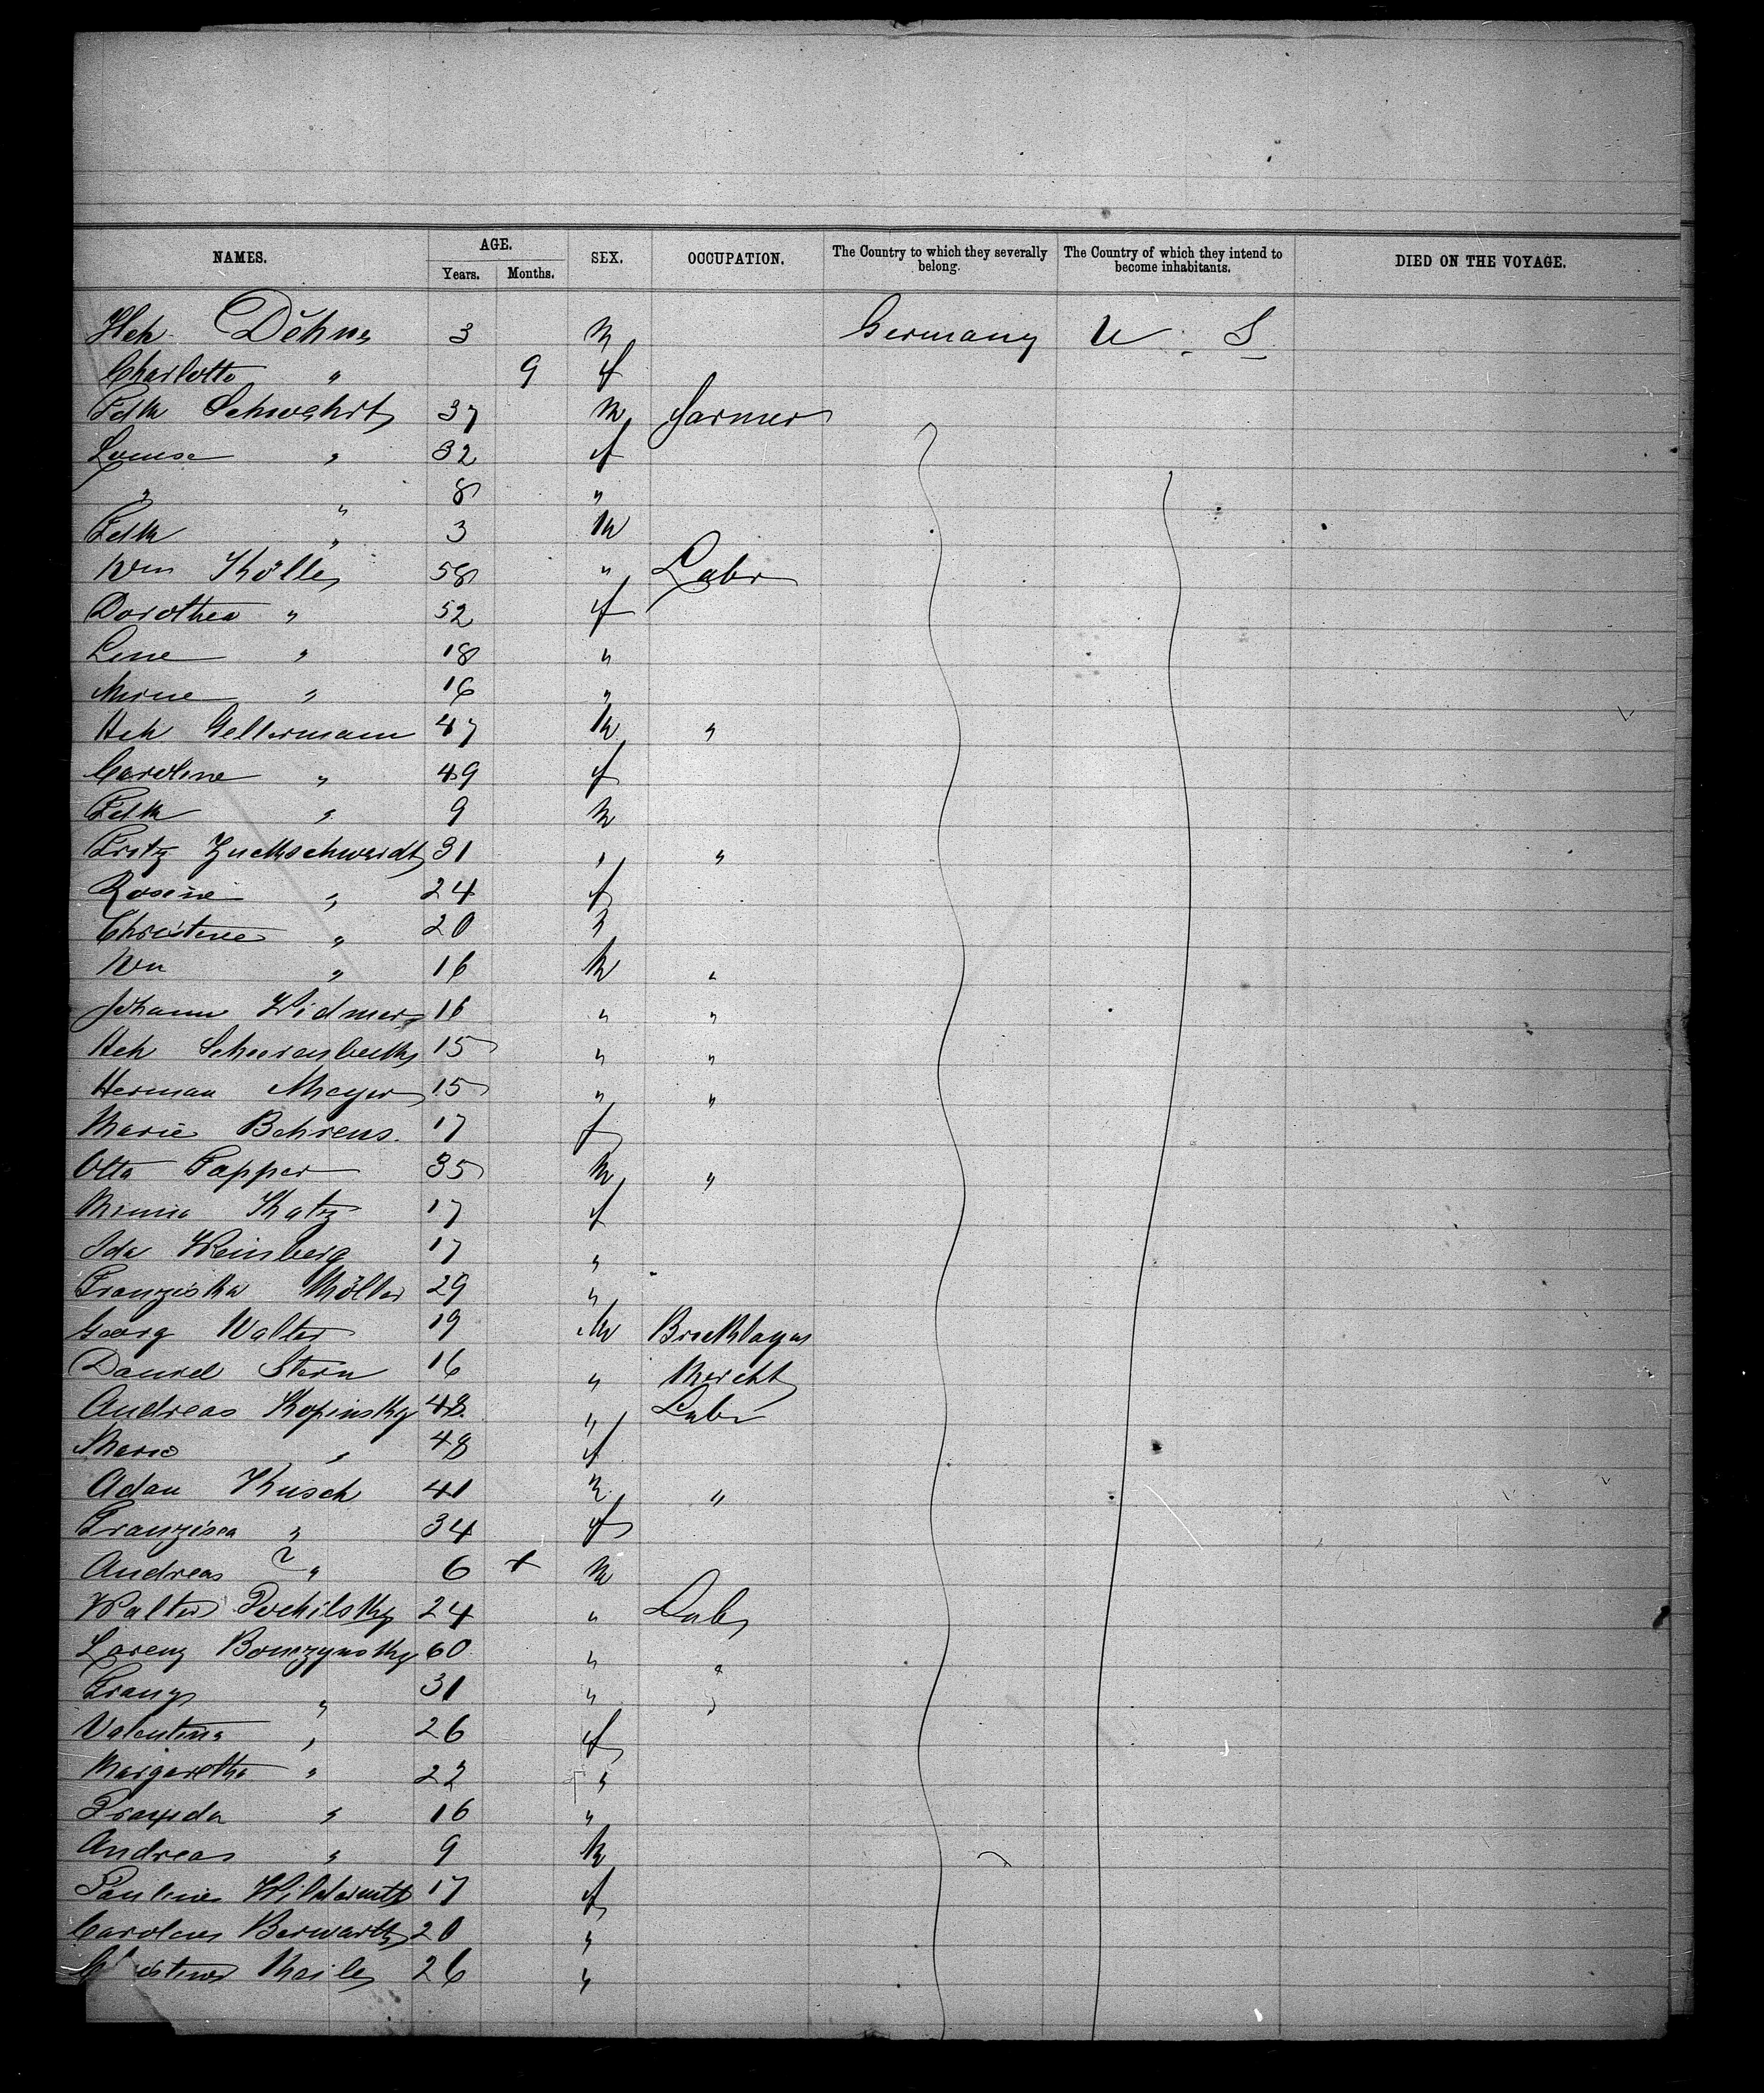 NAMES. AGE. SEX. OCCUPATION. The Country to which they severally belong. The Country of which they intend to become inhabitants. DIED ON THE VOYAGE.
Years. Months.
Hch Döhne 3 m Germany U. S.
Charlotte " 9 f
Fdk Schwehrt 37 m farmer
Louise " 32 f
" " 8 "
Fdk " 3 m
Wm Kölle 58 " Labr
Dorothea " 52 f
Line " 18 "
Mine " 16 "
Hch Gellermann 47 m "
Caroline " 49 f
Fdk " 9 m
Fritz Zuckschwerdt 31 " "
Rosine " 24 f
Christine " 20 "
Wm " 16 m "
Johann Widmer 16 " "
Hch 15 " "
Herman Meyer 15 " "
Marie Behrens. 17 f
Otto Tapper 35 m "
Minna Katz 17 f
Ida Weinberg 17 "
Franziska Möller 29 "
Georg Walter 19 m Bricklayer
Daniel Stern 16 " Mercht
Andreas Kopinsky 48 " Labr
Marie " 48 f
Adam Kusch 41 m "
Franzisca " 34 f
Andreas " 6 + m
Walter 24 " Labr
Lorenz 60 " "
Franz " 31 " "
Valentina " 26 f
Margaretha " 22 "
" 16 "
Andreas " 9 m
Pauline Wildermuth 17 f
Caroline Berwarth 20 "
26 "